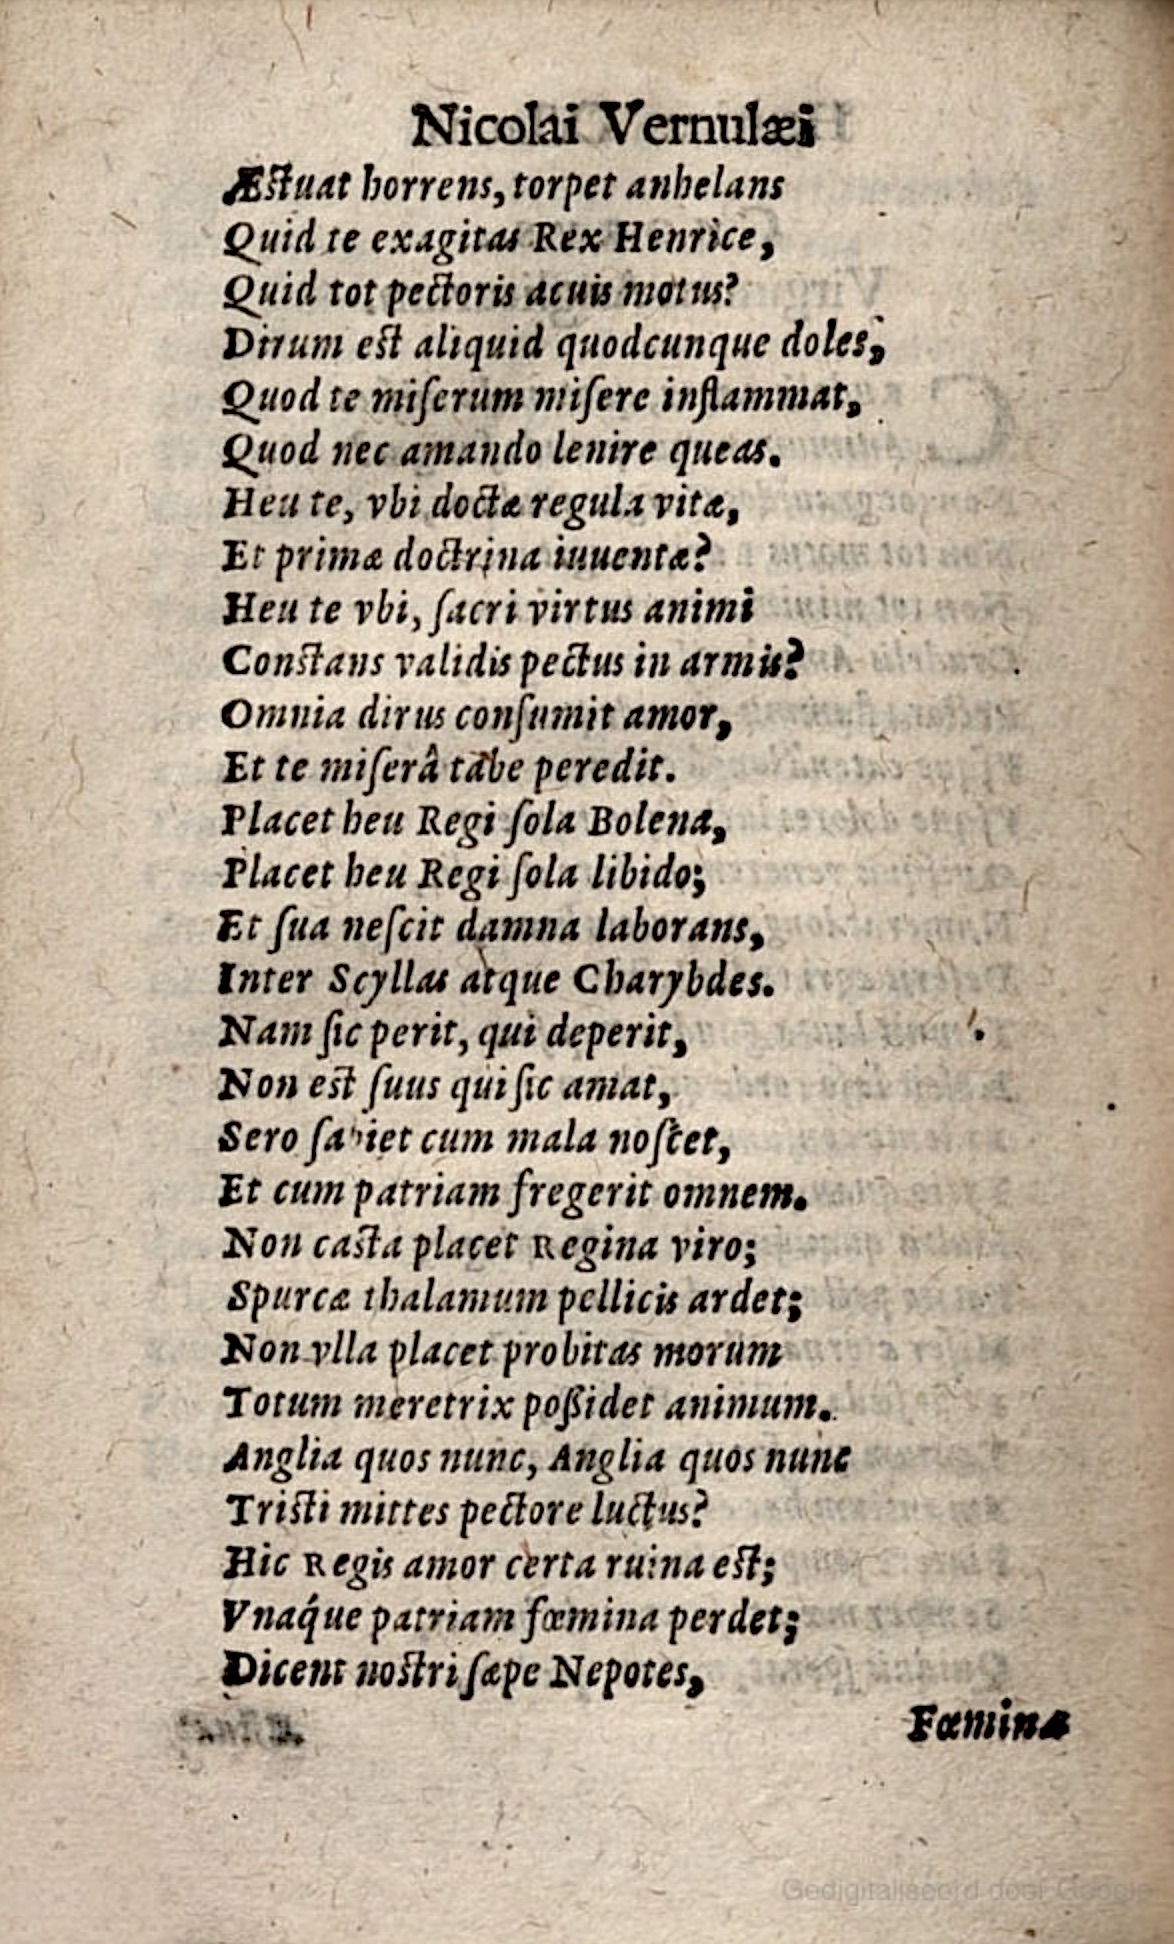 Nicolai Vernulæi
Æſtuat horrens, torpet anhelans
Quid te exagitas Rex Henrice,
Quid tot pectoris acuis motus?
Dirum eſt aliquid quodcunque doles,
Quod te miſerum miſere inflammat,
Quod nec amando lenire queas.
Heu te, vbi doctæ regula vitæ,
Et primæ doctrina iuuentæ?
Heu te vbi, ſacri virtus animi
Conſtans validis pectus in armis?
Omnia dirus conſumit amor,
Et te miſerâ tabe peredit.
Placet heu Regi ſola Bolena,
Placet heu Regi ſola libido;
Et ſua neſcit damna laborans,
Inter Scyllas atque Charybdes.
Nam ſic perit, qui deperit,
Non eſt ſuus qui ſic amat,
Sero ſapiet cum mala noſcet,
Et cum patriam fregerit omnem.
Non caſta placet Regina viro;
Spurcæ thalamum pellicis ardet;
Non vlla placet probitas morum
Totum meretrix poßidet animum.
Anglia quos nunc, Anglia quos nunc
Triſti mittes pectore luctus?
Hic Regis amor certa ruina eſt;
Vnaq́ue patriam fœmina perdet;
Dicent noſtri ſæpe Nepotes,
Fœmina
Gedigitaliseerd door Google